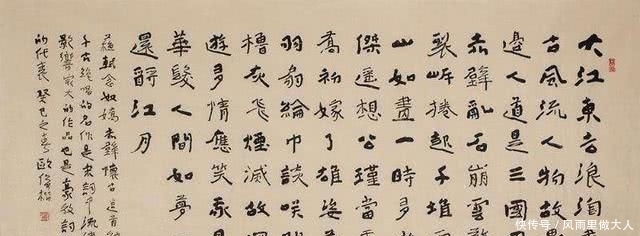 大江東去浪淘
古風流人物故
邊人道是三國
赤壁亂石崩雲
裂岸捲起千堆
山如畫一時多
傑遙想公瑾當
喬初嫁了雄姿
羽扇綸巾談咲
櫓灰飛煙滅故
遊多情應笑我
華髮人間如夢
還酹江月
蘇軾念奴嬌赤壁懷古這首
千古絕唱的名作是宋詞中流傳
影響最大的作品也是豪放詞
的代表 癸巳之春 歐
快传号/风雨里做大人